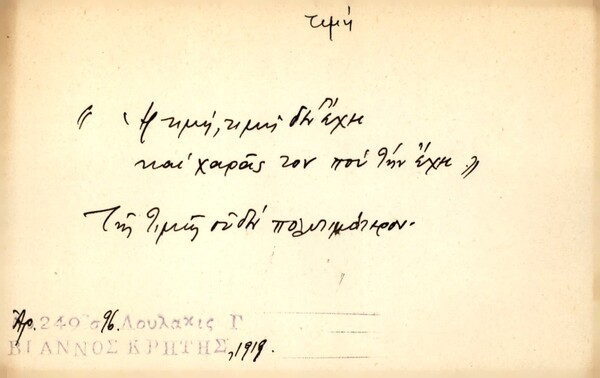 τιμή
« Ἡ τιμή, τιμή δὲν ἔχει
καὶ χαρᾶς τον ποὺ τὴν ἔχει »
Τῆς τιμῆς οὐδὲν πολυτιμότερον.
Ἀρ. 240 σ 96. Λουλακις Γ
ΒΙΑΝΝΟΣ ΚΡΗΤΗΣ, 1919.